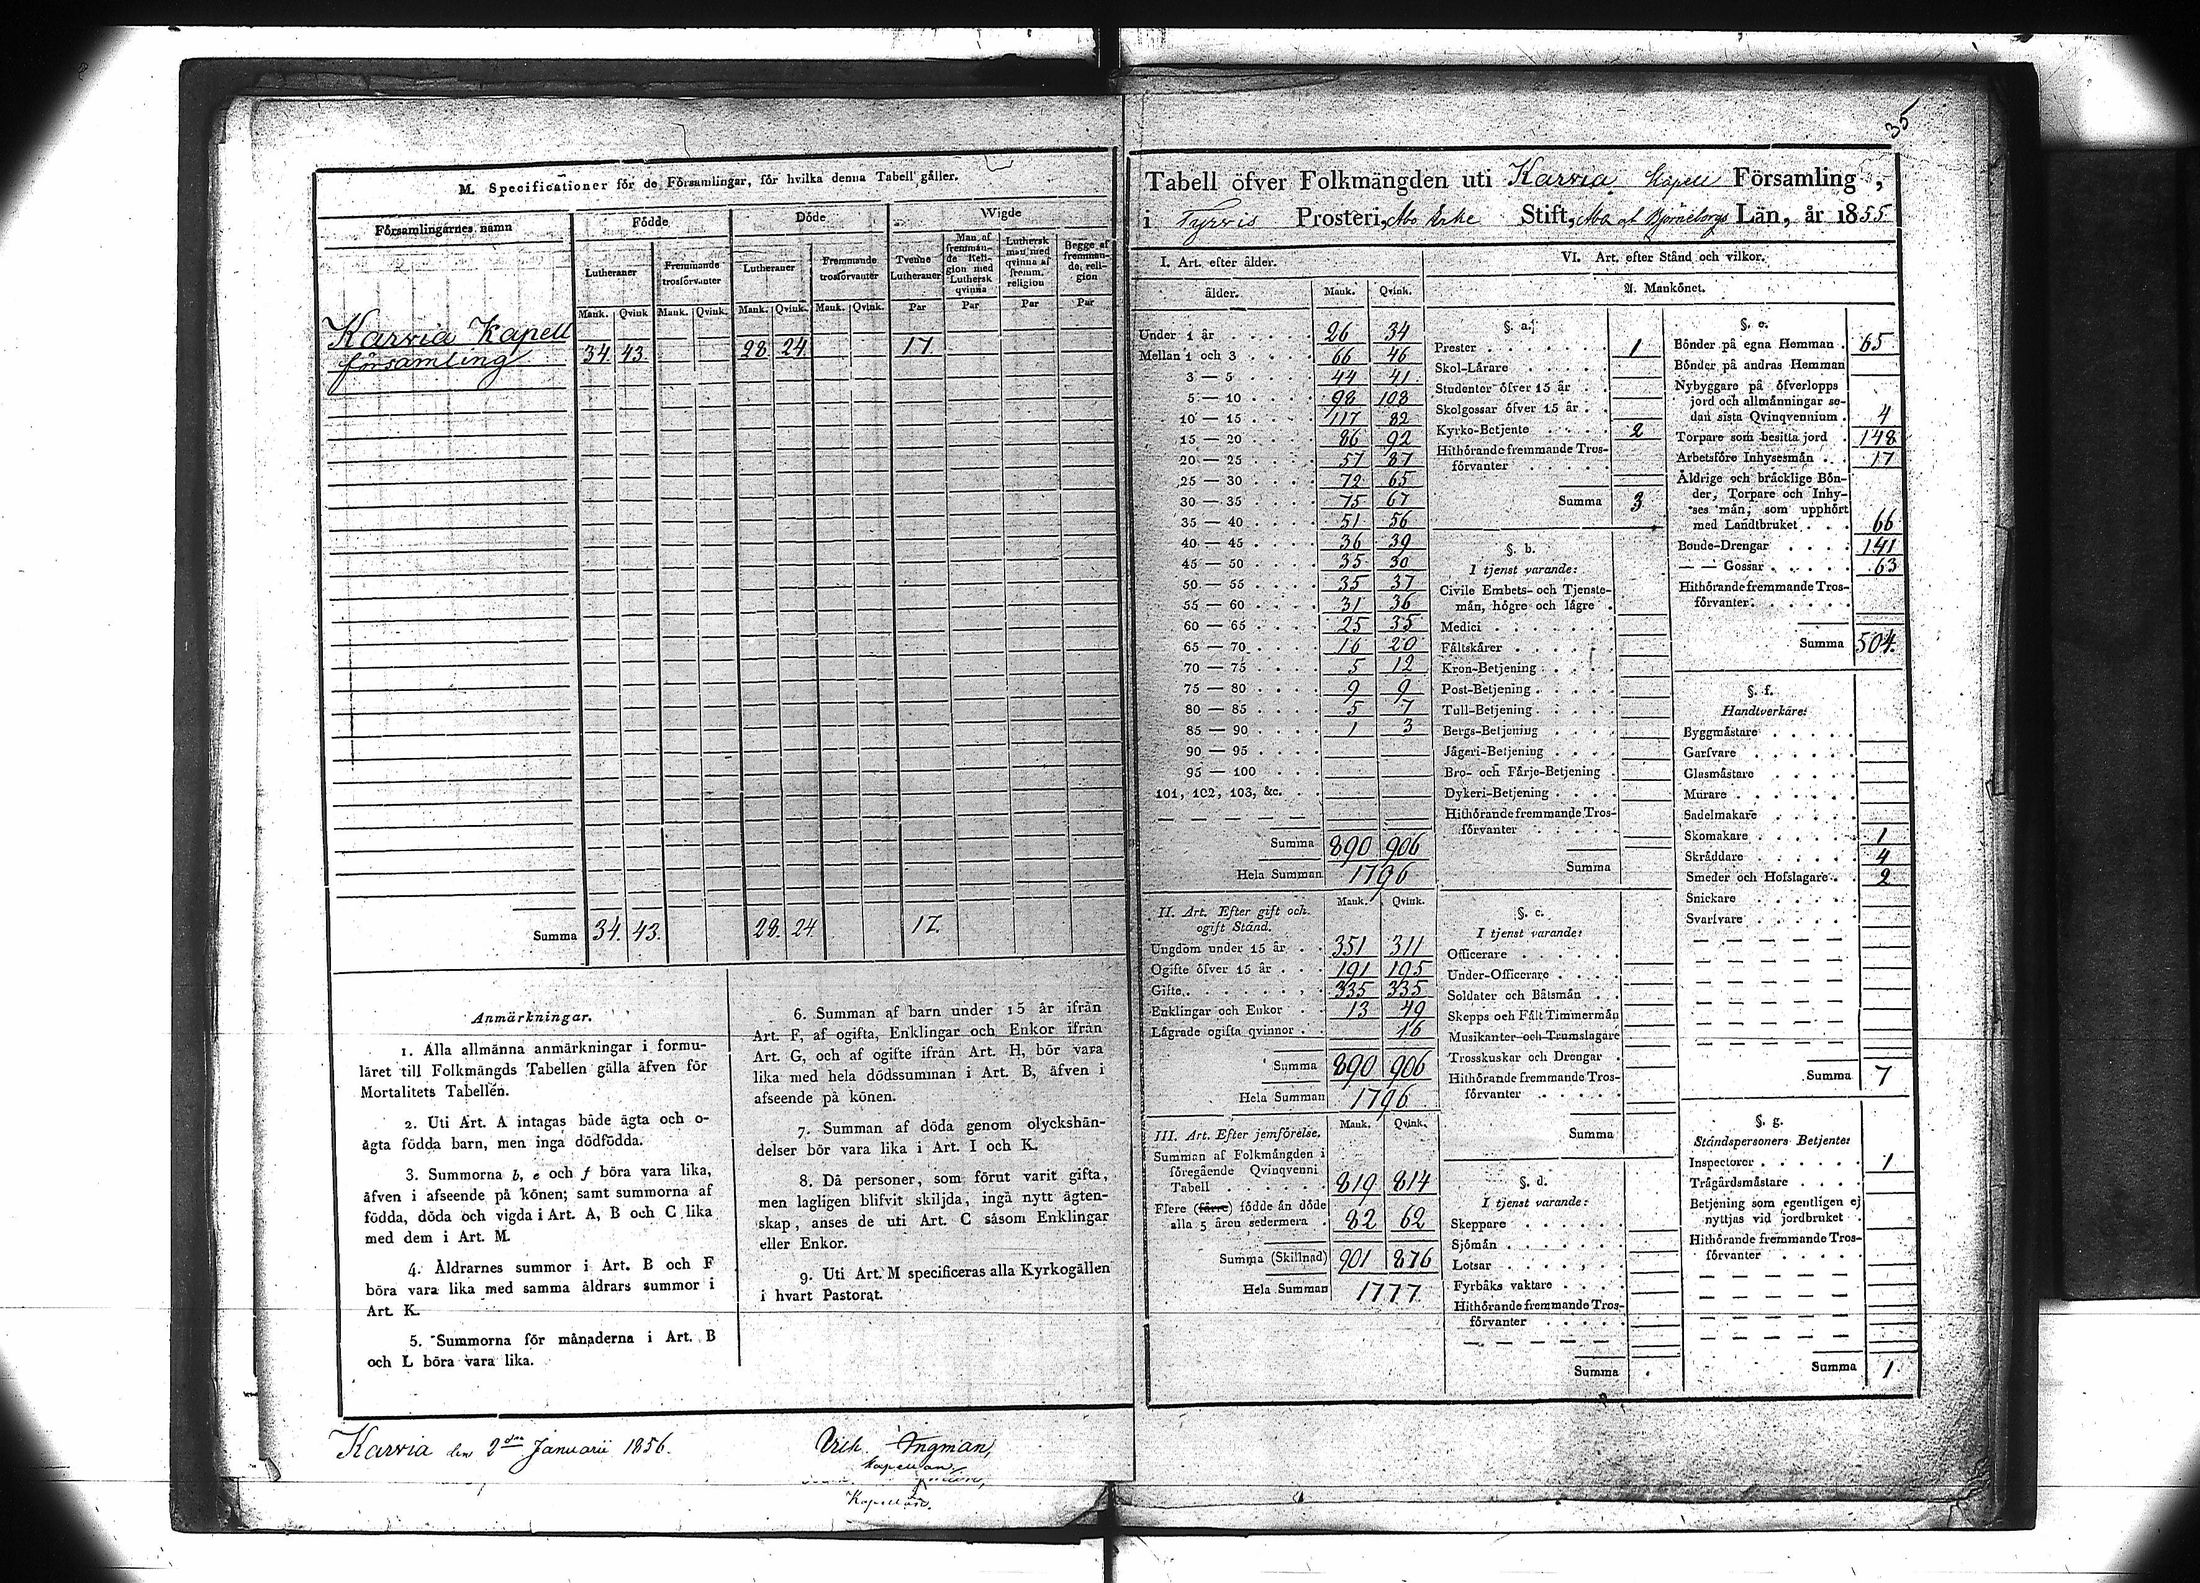 M. Specificationer för de Församlingar, för hvilka denna Tabell gäller.
Församlingarnes namn Födde Döde Wigde
Lutheraner Fremmande trosförvanter Lutheraner Fremmande trosförvanter Tvenne Lutheraner Man af fremmande Religion med Luthersk qvinna Luthersk man med qvinna af fremm. religion Begge af fremmande religion
Mank. Qvink. Mank. Qvink. Mank. Qvink. Mank. Qvink. Par Par Par Par
Karvia Kapell
församling 34. 43. 28. 24. 17.
Summa 34. 43. 28. 24. 17.
Anmärkningar.
1. Alla allmänna anmärkningar i formu-
läret till Folkmängds Tabellen gälla äfven för
Mortalitets Tabellen.
2. Uti Art. A intagas både ägta och o-
ägta födda barn, men inga dödfödda.
3. Summorna b, e och f böra vara lika,
äfven i afseende på könen; samt summorna af
födda, döda och vigda i Art. A, B och C lika
med dem i Art. M.
4. Åldrarnes summor i Art. B och F
böra vara lika med samma åldrars summor i
Art. K.
5. Summorna för månaderna i Art. B
och L böra vara lika.
6. Summan af barn under 15 år ifrån
Art. F, af ogifta, Enklingar och Enkor ifrån
Art. G, och af ogifte ifrån Art. H, bör vara
lika med hela dödssumman i Art. B, äfven i
afseende på könen.
7. Summan af döda genom olyckshän-
delser bör vara lika i Art. I och K.
8. Då personer, som förut varit gifta,
men lagligen blifvit skiljda, ingå nytt ägten-
skap, anses de uti Art. C såsom Enklingar
eller Enkor.
9. Uti Art. M specificeras alla Kyrkogällen
i hvart Pastorat.
Karvia den 2dra Januarii 1856.
Vilh. Ingman,
Kapellan
Kapellan.
35
Tabell öfver Folkmängden uti Karvia Kapell Församling,
i Tyrvis Prosteri, Åbo Erke Stift, Åbo at Björneborgs Län, år 1855.
I. Art. efter ålder.
ålder. Mank. Qvink.
Under 1 år 26 34
Mellan 1 och 3 66 46
3 — 5 44 41
5 — 10 98 108
10 — 15 117 82
15 — 20 86 92
20 — 25 57 87
25 — 30 72 65
30 — 35 75 67
35 — 40 51 56
40 — 45 36 39
45 — 50 35 30
50 — 55 35 37
55 — 60 31 36
60 — 65 25 35
65 — 70 16 20
70 — 75 5 12
75 — 80 9 9
80 — 85 5 7
85 — 90 1 3
90 — 95
95 — 100
101, 102, 103, &c.
Summa 890 906
Hela Summan 1796
II. Art. Efter gift och ogift Stånd. Mank. Qvink.
Ungdom under 15 år 351 311
Ogifte öfver 15 år 191 195
Gifte 335 335
Enklingar och Enkor 13 49
Lägrade ogifta qvinnor 16
Summa 890 906
Hela Summan 1796
III. Art. Efter jemförelse. Mank. Qvink.
Summan af Folkmängden i
föregående Qvinqvenni
Tabell 819 814
Flere (färre) födde än döde
alla 5 åren sedermera 82 62
Summa (Skillnad) 901 876
Hela Summan 1777.
VI. Art. efter Stånd och vilkor.
A. Mankönet.
§. a.
Prester 1
Skol-Lärare
Studenter öfver 15 år
Skolgossar öfver 15 år
Kyrko-Betjente 2
Hithörande fremmande Tros-
förvanter
Summa 3
§. b.
I tjenst varande:
Civile Embets- och Tjenste-
män, högre och lägre
Medici
Fältskärer
Kron-Betjening
Post-Betjening
Tull-Betjening
Bergs-Betjening
Jägeri-Betjening
Bro- och Färje-Betjening
Dykeri-Betjening
Hithörande fremmande Tros-
förvanter
Summa
§. c.
I tjenst varande:
Officerare
Under-Officerare
Soldater och Båtsmän
Skepps och Fält Timmermän
Musikanter och Trumslagare
Trosskuskar och Drengar
Hithörande fremmande Tros-
förvanter
Summa
§. d.
I tjenst varande:
Skeppare
Sjömän
Lotsar
Fyrbåks vaktare
Hithörande fremmande Tros-
förvanter
Summa
§. e.
Bönder på egna Hemman 65
Bönder på andras Hemman
Nybyggare på öfverlopps
jord och allmänningar se-
dan sista Qvinqvennium 4
Torpare som besitta jord 148
Arbetsföre Inhysesmän 17
Åldrige och bräcklige Bön-
der, Torpare och Inhy-
ses män, som upphört
med Landtbruket 66
Bonde-Drengar 141
— — Gossar 63
Hithörande fremmande Tros-
förvanter
Summa 504.
§. f.
Handtverkare:
Byggmästare
Garfvare
Glasmästare
Murare
Sadelmakare
Skomakare 1
Skräddare 4
Smeder och Hofslagare 2
Snickare
Svarfvare
Summa 7
§. g.
Ståndspersoners Betjente:
Inspectorer 1
Trägårdsmästare
Betjening som egentligen ej
nyttjas vid jordbruket
Hithörande fremmande Tros-
förvanter
Summa 1.